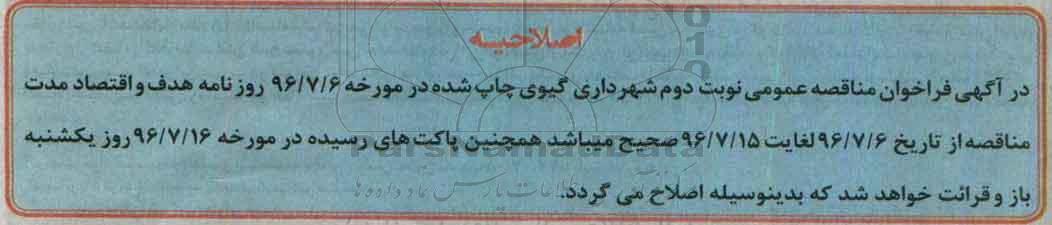 اصلاحیه
در آگهی فراخوان مناقصه عمومی نوبت دوم شهرداری گیوی چاپ شده در مورخه ۹۶/۷/۶ روزنامه هدف و اقتصاد مدت
مناقصه از تاریخ ۹۶/۷/۶ لغایت ۹۶/۷/۱۵ صحیح میباشد همچنین پاکت های رسیده در مورخه ۹۶/۷/۱۶ روز یکشنبه
باز و قرائت خواهد شد که بدینوسیله اصلاح می گردد.